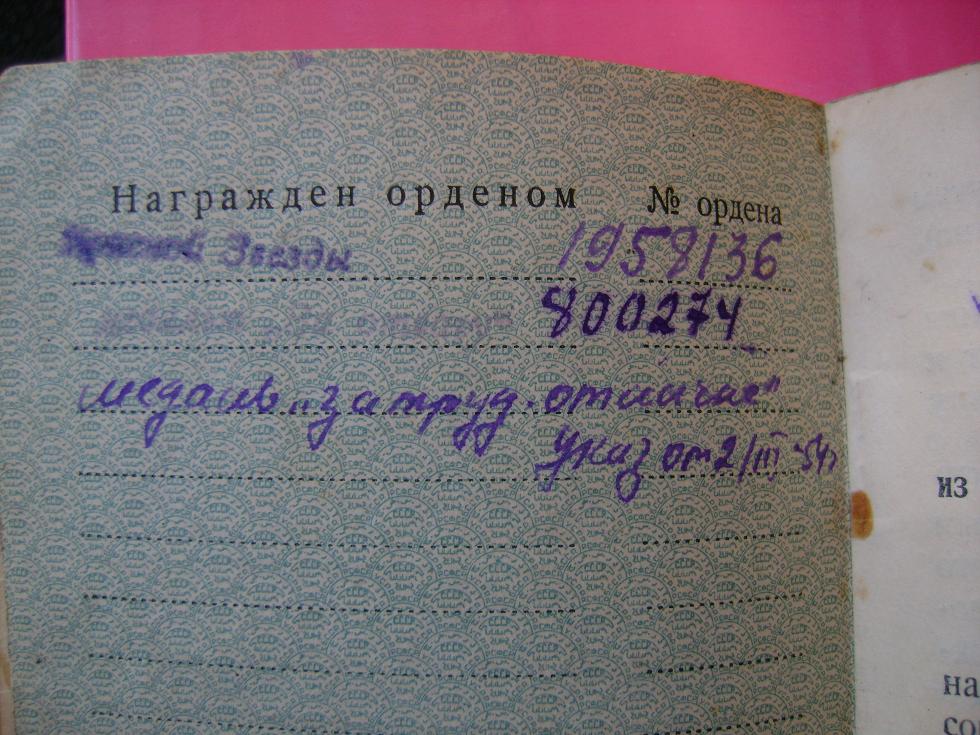 Награжден орденом № ордена
Красной Звезды 1958136
800274
медаль „за труд. отличие"
Указ от 2/III-54г
из
на
со